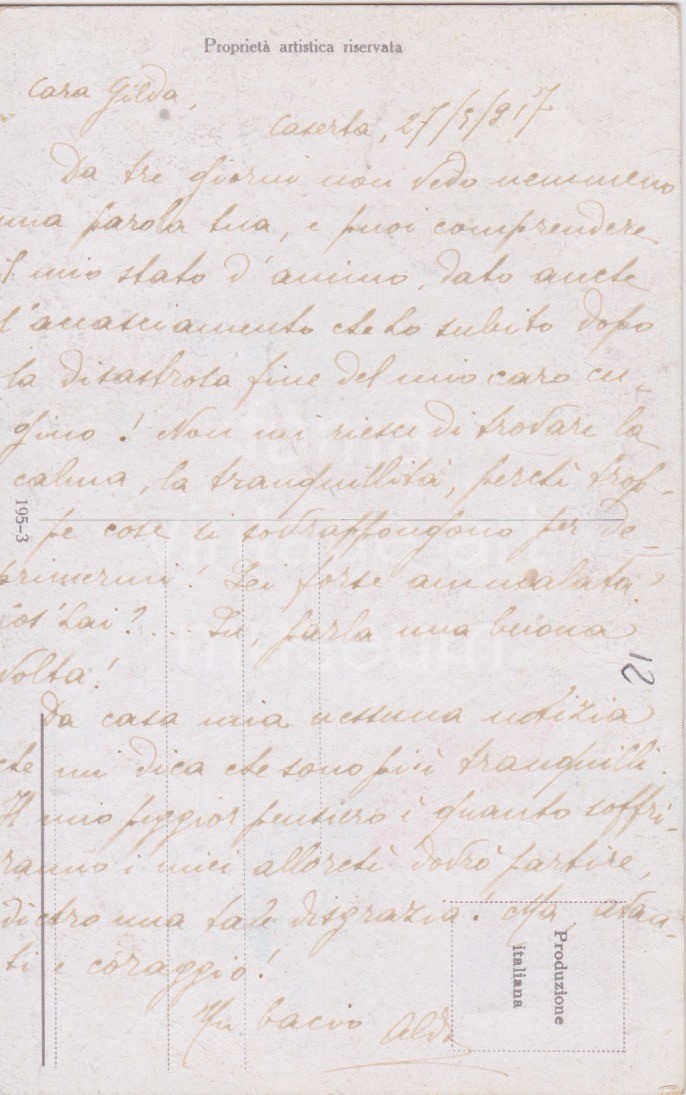 Proprietà artistica riservata
Cara Gilda,
Caserta, 27/5/917
Da tre giorni non vedo nemmeno
una parola tua, e puoi comprendere
il mio stato d'animo, dato anche
l'accasciamento che ho subito dopo
la disastrosa fine del mio caro cu-
gino! Non mi riesce di trovare la
calma, la tranquillità, perchè trop-
pe cose si sovrappongono per de-
primermi! Sei forse ammalata?
Cos'hai?... Su, parla una buona
volta!
Da casa mia nessuna notizia
che mi dica che sono più tranquilli.
Il mio peggior pensiero è quanto soffri-
ranno i miei allorchè dovrò partire,
dietro una tale disgrazia! Ma avan-
ti e coraggio!
Un bacio Aldo
195-3
12
Produzione
italiana
vintage art
museum